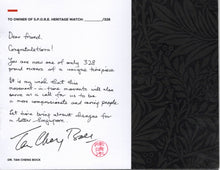 TO OWNER OF S.P.O.R.E. HERITAGE WATCH ______/328
Dear friend,
Congratulations!
You are now one of only 328
proud owners of a unique timepiece
It is my wish that this
movement in time moments will also
serve as a call for us to be
a more compassionate and caring people.
Let this bring about changes for
a better Singapore
Tan Cheng Bock
DR. TAN CHENG BOCK